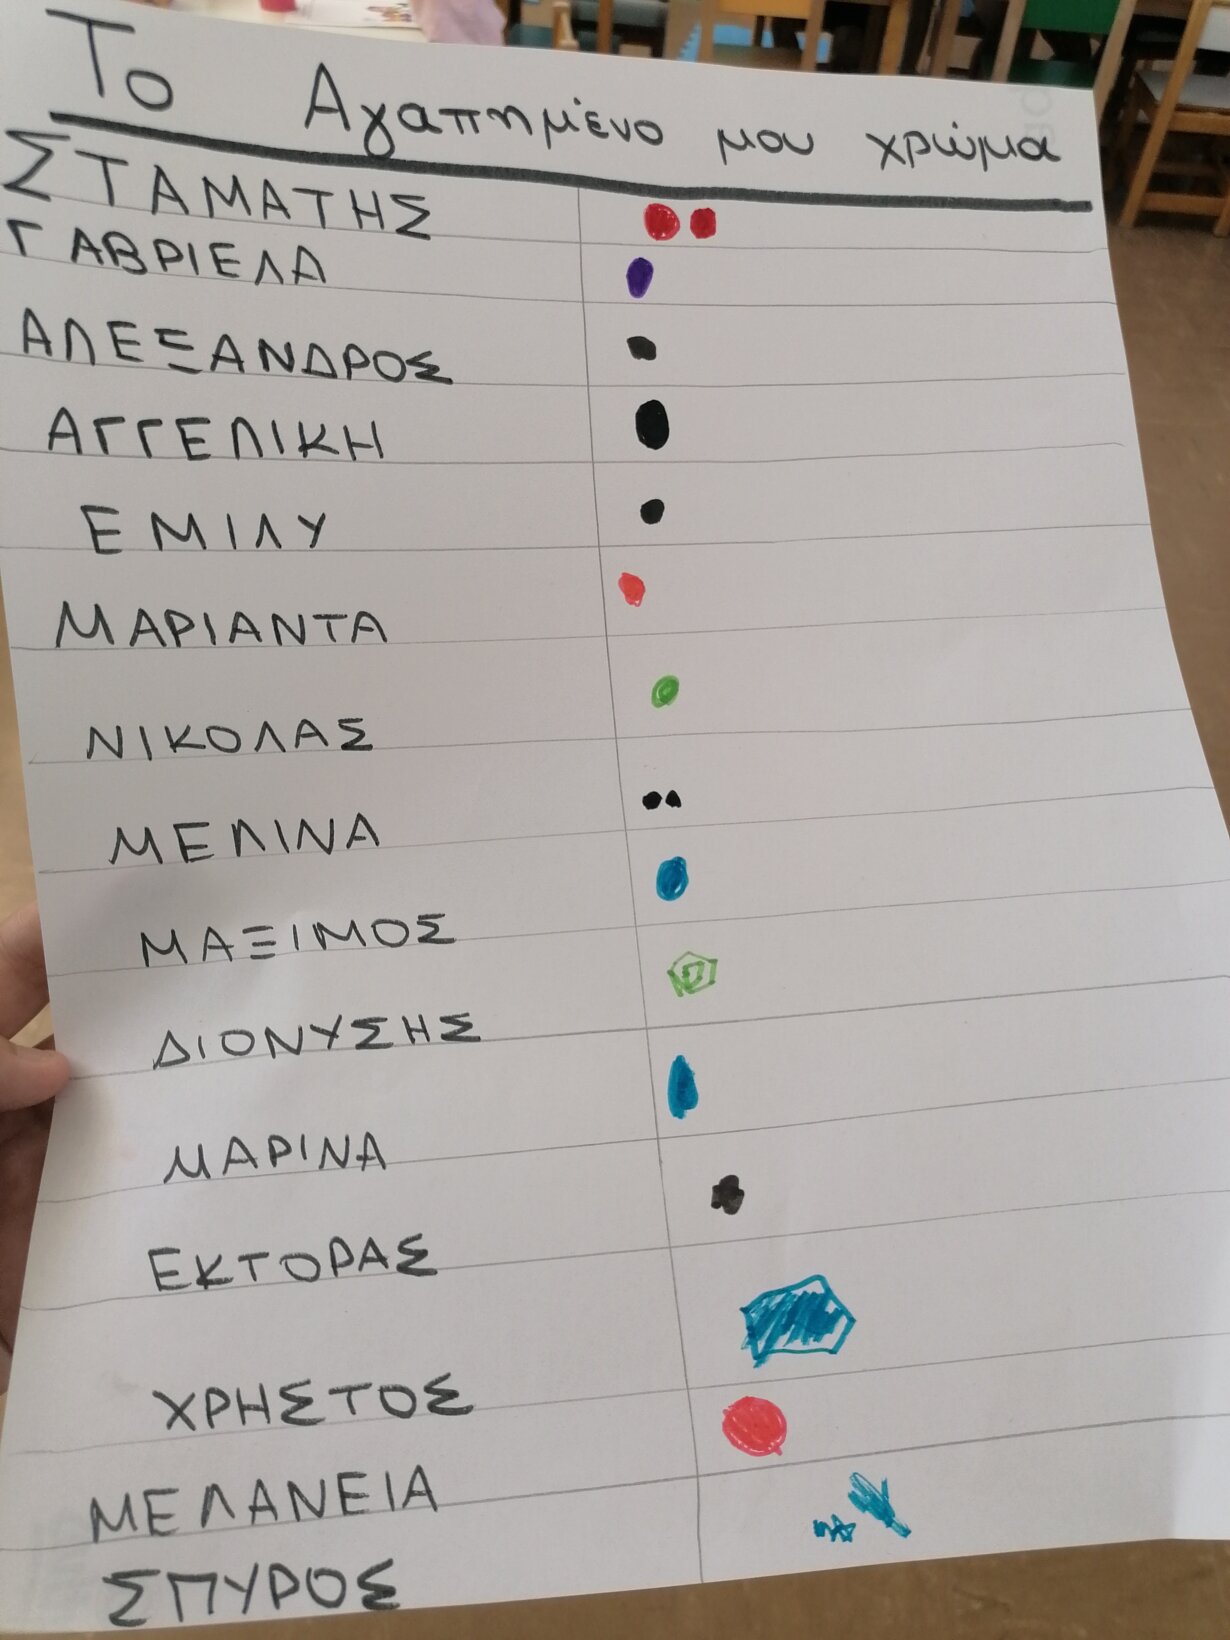 Το Αγαπημένο μου χρώμα
ΣΤΑΜΑΤΗΣ
ΓΑΒΡΙΕΛΑ
ΑΛΕΞΑΝΔΡΟΣ
ΑΓΓΕΛΙΚΗ
ΕΜΙΛΥ
ΜΑΡΙΑΝΤΑ
ΝΙΚΟΛΑΣ
ΜΕΛΙΝΑ
ΜΑΞΙΜΟΣ
ΔΙΟΝΥΣΗΣ
ΜΑΡΙΝΑ
ΕΚΤΟΡΑΣ
ΧΡΗΣΤΟΣ
ΜΕΛΑΝΕΙΑ
ΣΠΥΡΟΣ